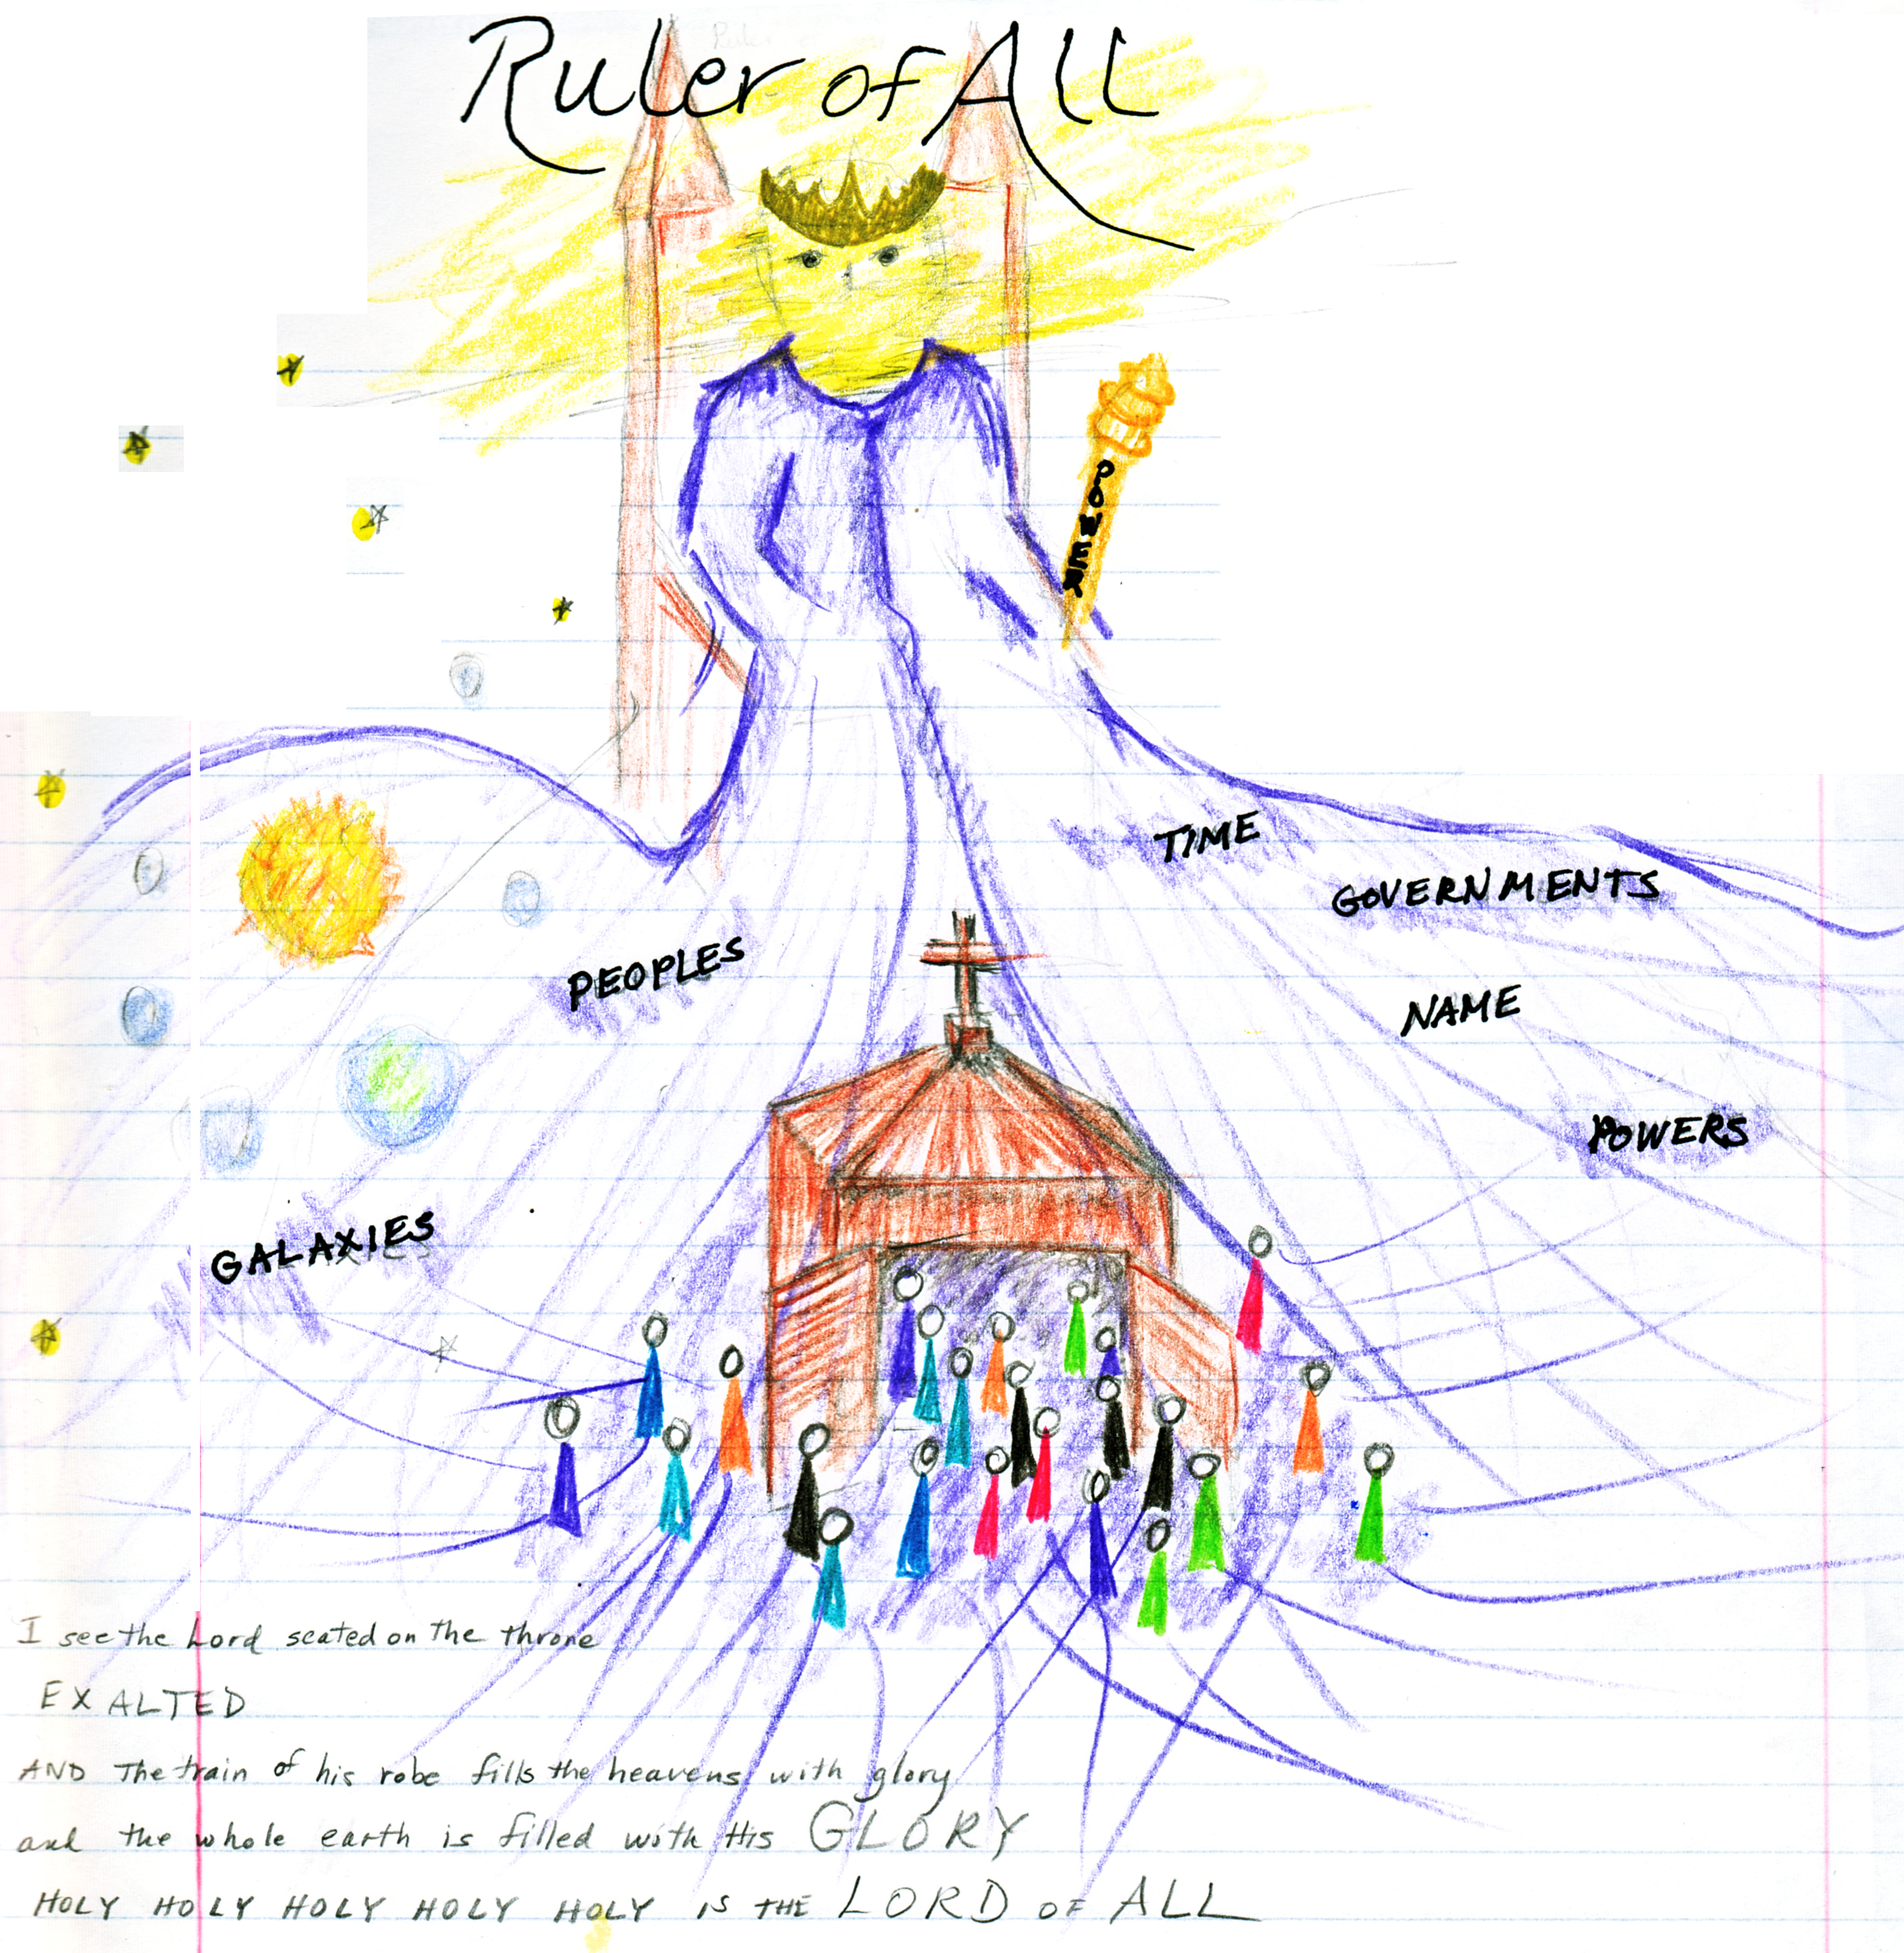 Ruler of All
POWER
TIME
GOVERNMENTS
PEOPLES
NAME
POWERS
GALAXIES
I see the Lord seated on the throne
EXALTED
AND The train of his robe fills the heavens with glory
and the whole earth is filled with His GLORY
HOLY HOLY HOLY HOLY HOLY IS THE LORD OF ALL